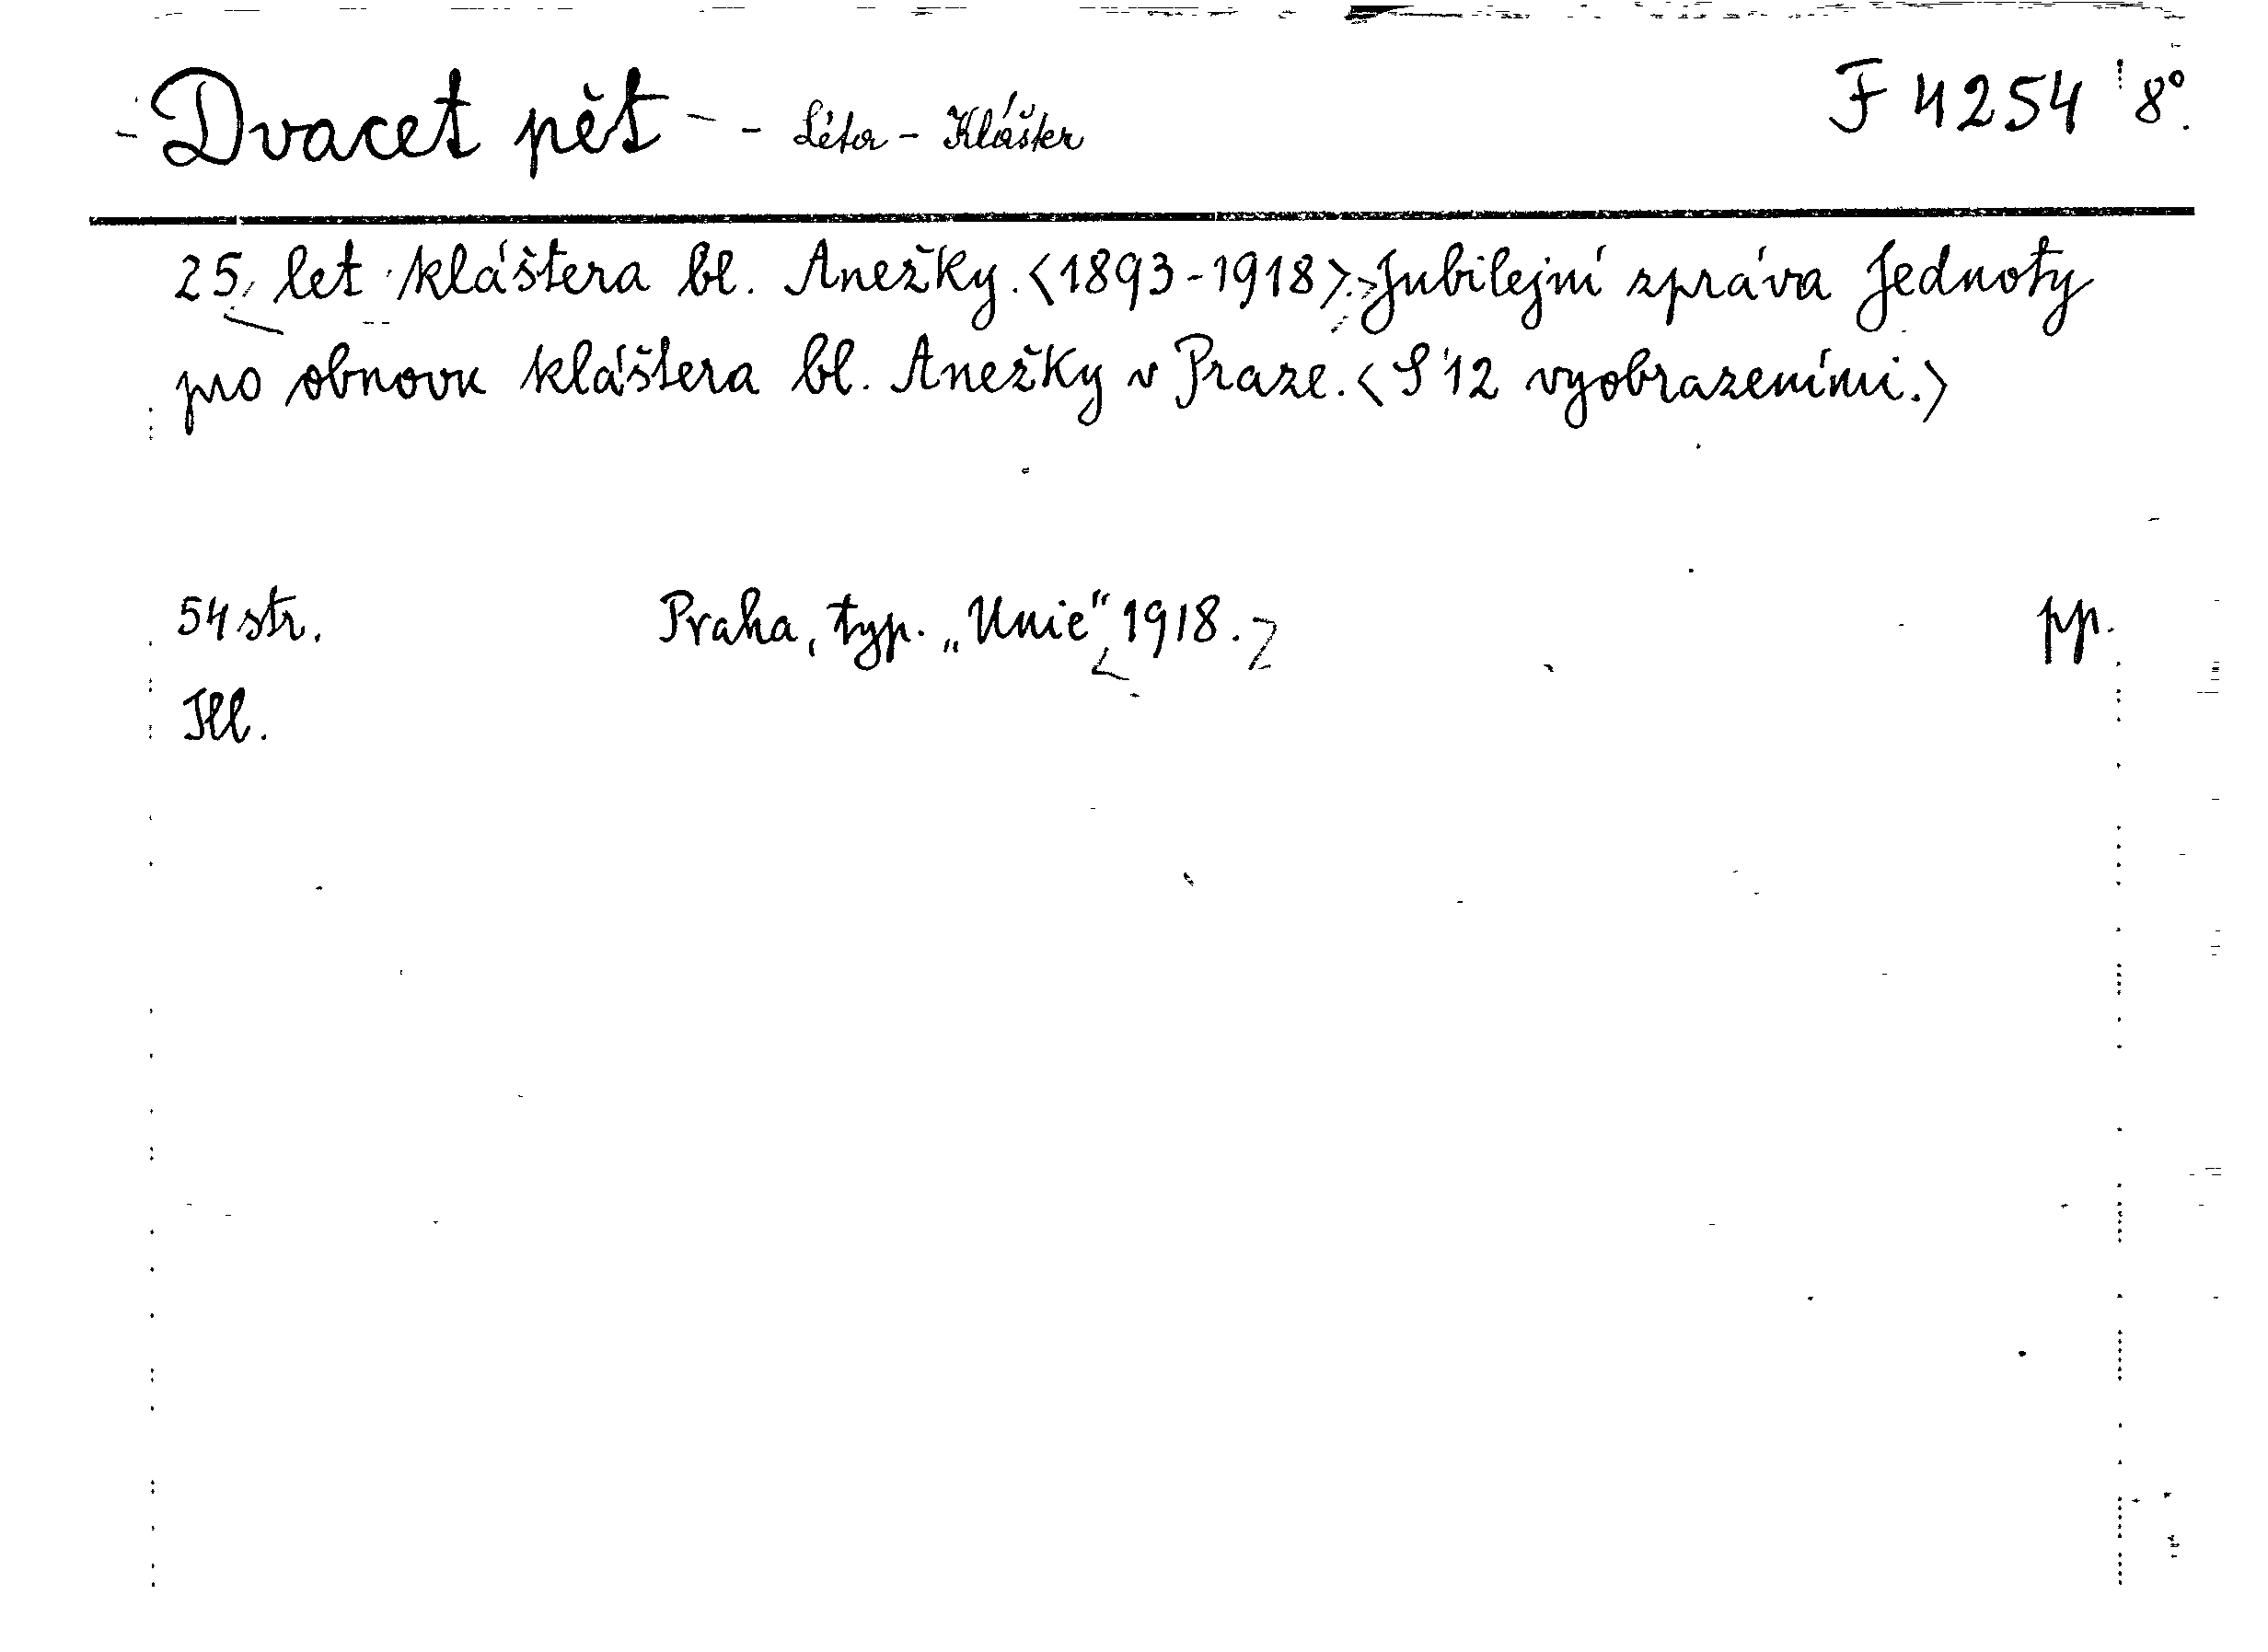 Dvacet pět - - Léta - Klášter F 4254 8°.
25 let kláštera bl. Anežky. <1893-1918>. Jubilejní zpráva Jednoty
pro obnovu kláštera bl. Anežky v Praze. <S 12 vyobrazeními.>
54 str. Praha, typ. „Unie“ 1918. pp.
Ill.